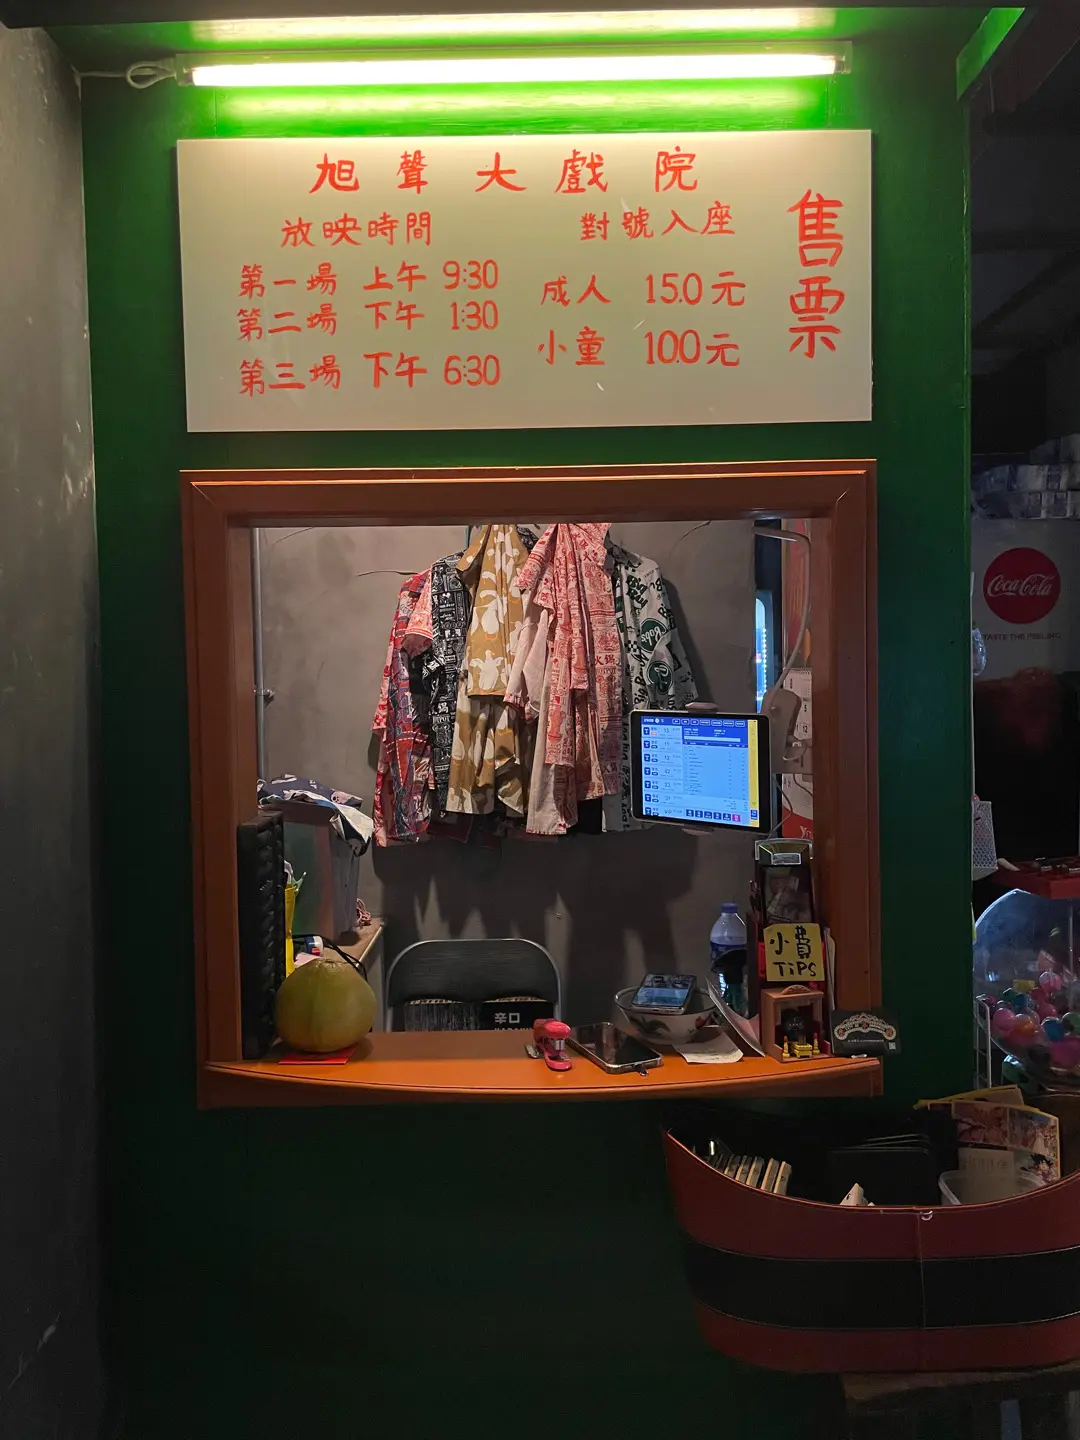 旭聲大戲院
放映時間
第一場 上午 9:30
第二場 下午 1:30
第三場 下午 6:30
對號入座
成人 15.0元
小童 10.0元
售票
Coca-Cola
TASTE THE FEELING
小費
TiPS
辛口